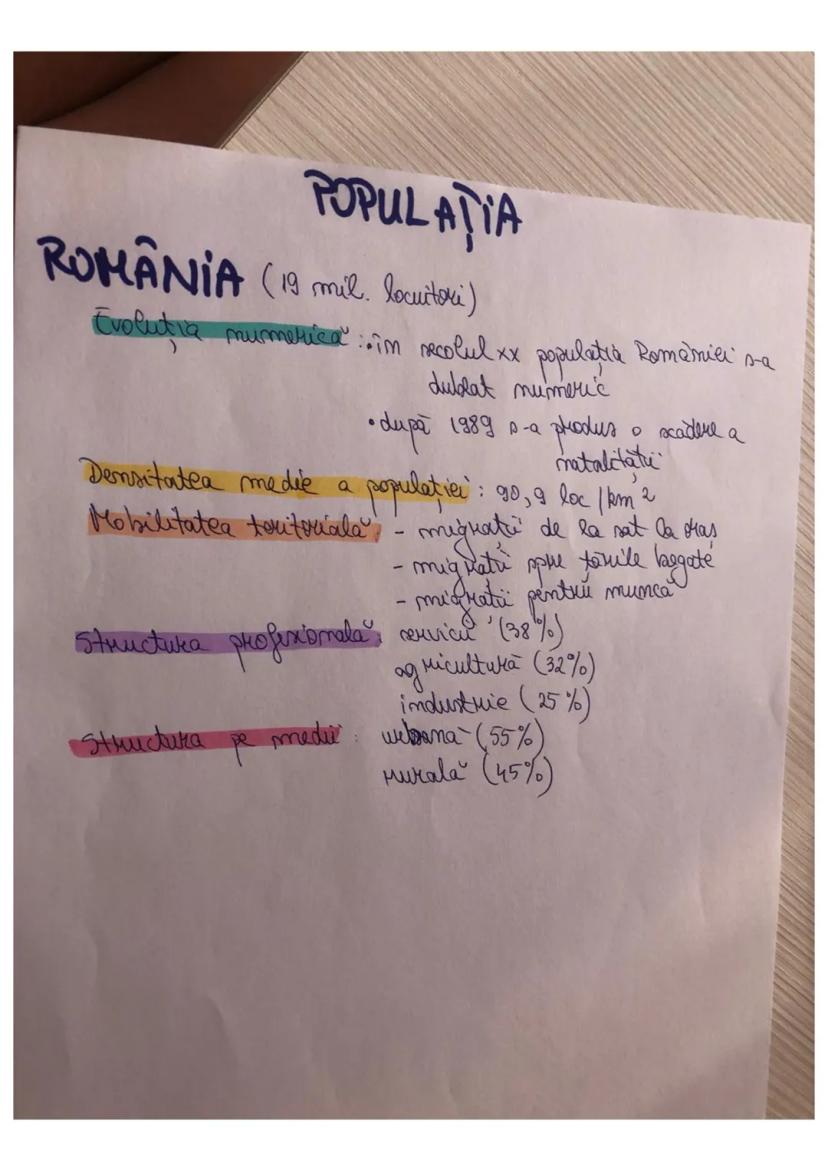 POPULAȚIA
ROMÂNIA (19 mil. locuitori)
Evoluția numerică : • în secolul xx populația României s-a
dublat numeric
• după 1989 s-a produs o scădere a
natalității
Densitatea medie a populației : 90,9 loc/km²
Mobilitatea teritorială : - migrații de la sat la oraș
- migrații spre țările bogate
- migrații pentru muncă
Structura profesională : servicii (38%)
agricultură (32%)
industrie (25%)
Structura pe medii : urbană (55%)
rurală (45%)